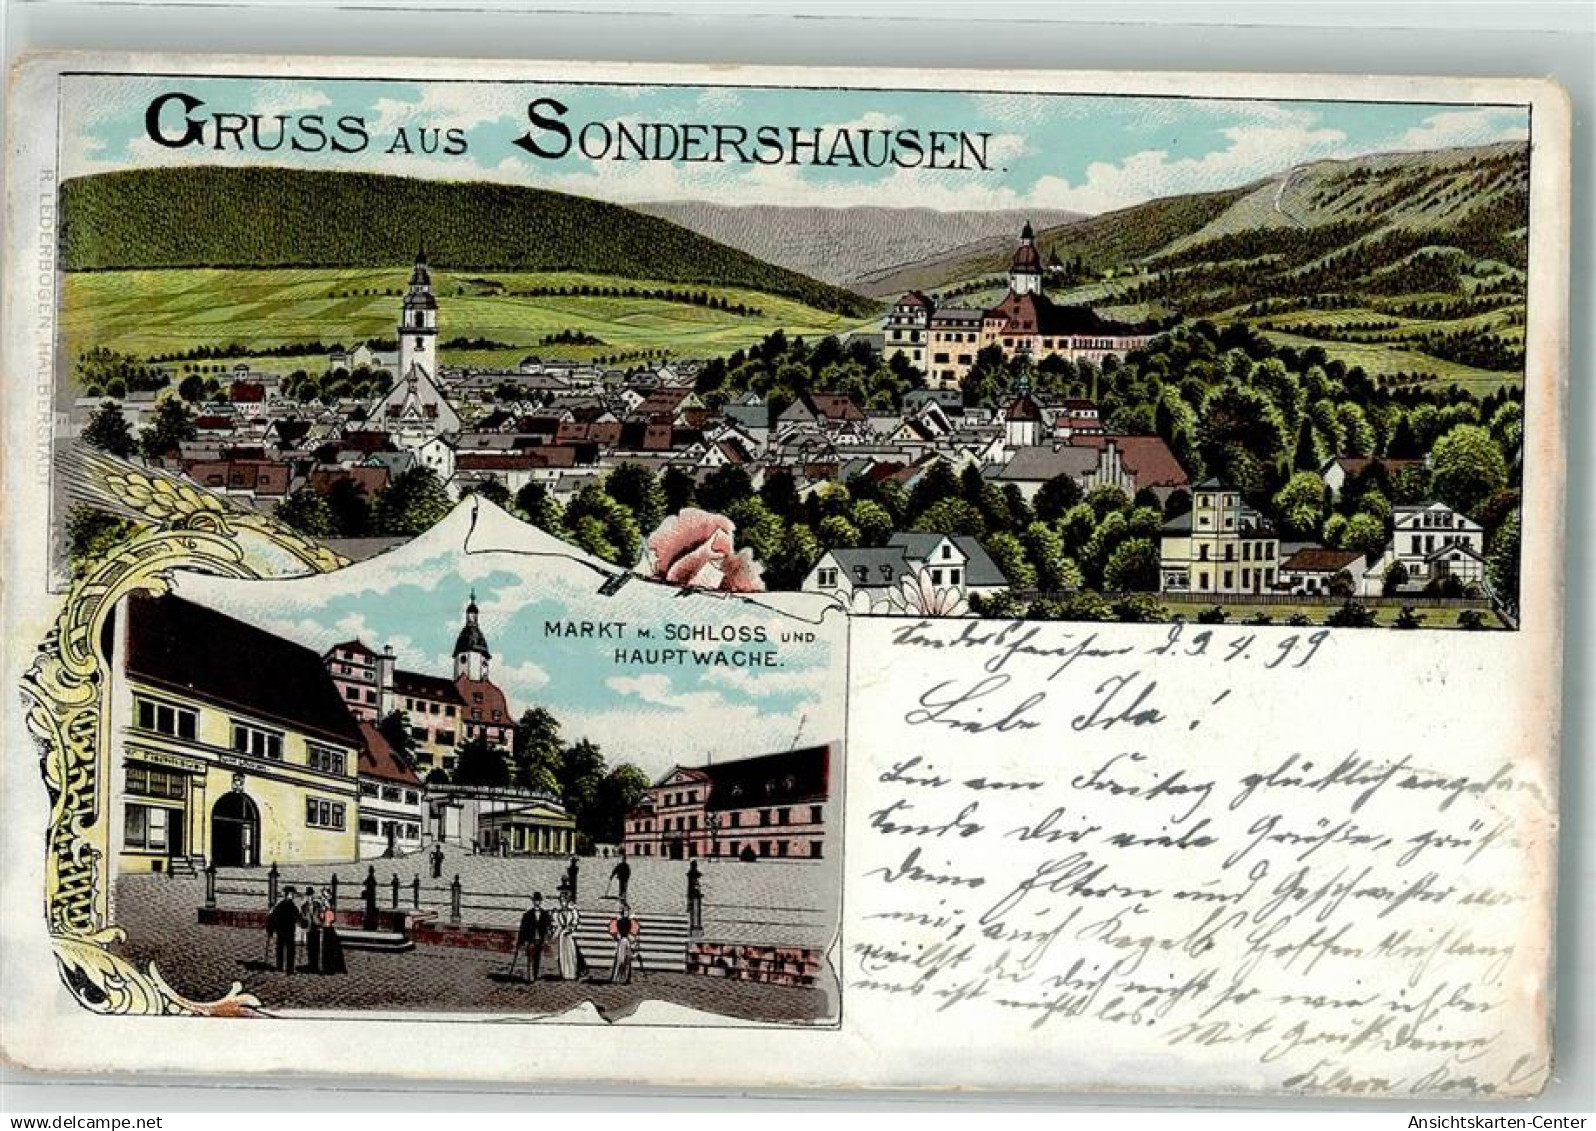 GRUSS AUS SONDERSHAUSEN.
R. LEDERBOGEN, HALBERSTADT
MARKT M. SCHLOSS UND
HAUPTWACHE.
Sondershausen d. 9.4.99
Liebe Ida!
Bin am Freitag glücklich angekom
Sende Dir viele Grüße, grüße
Deine Eltern und Geschwister von
mir, auch Kegels. Hoffentlich lang
weilst du dich nicht so wie ich, bei
uns ist nichts los.
Mit Gruß Deine
Ansichtskarten-Center